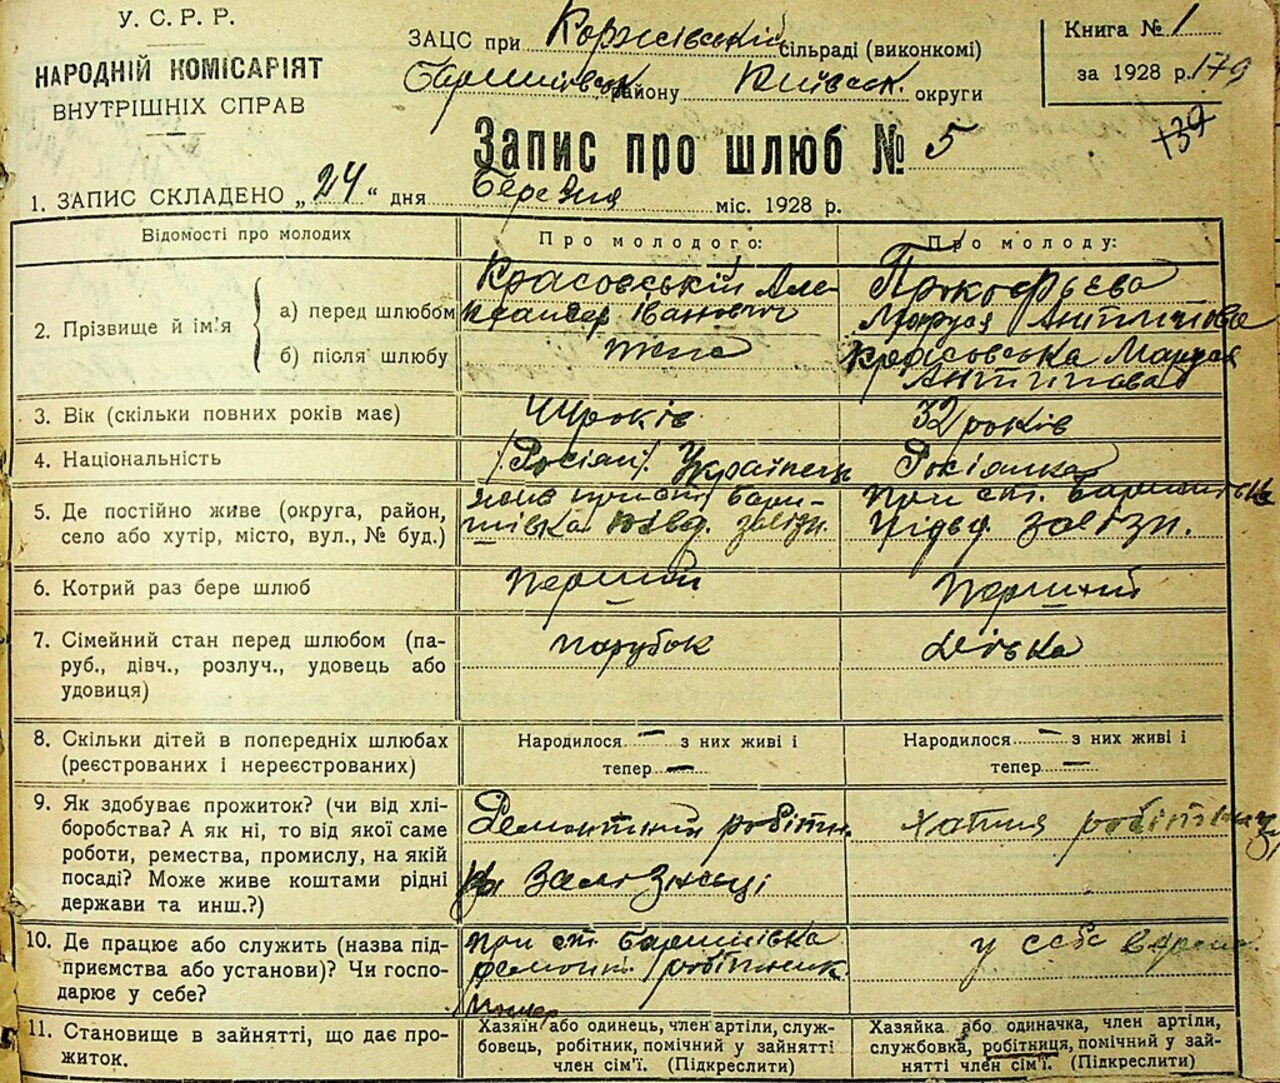 У. С. Р. Р.
НАРОДНІЙ КОМІСАРІЯТ
ВНУТРІШНІХ СПРАВ
ЗАЦС при Коржівській сільраді (виконкомі)
Баришівськ району Київськ. округи
Книга № 1
за 1928 р. 179
139
Запис про шлюб № 5
1. ЗАПИС СКЛАДЕНО „24" дня Березня міс. 1928 р.
Відомості про молодих
Про молодого:
Про молоду:
2. Прізвище й ім'я
а) перед шлюбом
Красовський Але-
ксандер Іванович
Прокофьєва
Маруся Антипова
б) після шлюбу
Красовська Маруся
Антипова
3. Вік (скільки повних років має)
44 років
32 років
4. Національність
/Росіян/. Українець
Росіянка
5. Де постійно живе (округа, район,
село або хутір, місто, вул., № буд.)
при ст. Бари-
шівка Півд. залізн.
При ст. Баришівка
Півд. залізн.
6. Котрий раз бере шлюб
перший
Перший
7. Сімейний стан перед шлюбом (па-
руб., дівч., розлуч., удовець або
удовиця)
парубок
Дівка
8. Скільки дітей в попередніх шлюбах
(реєстрованих і нереєстрованих)
Народилося — з них живі і
тепер —
Народилося — з них живі і
тепер —
9. Як здобуває прожиток? (чи від хлі-
боробства? А як ні, то від якої саме
роботи, ремества, промислу, на якій
посаді? Може живе коштами рідні
держави та инш.?)
Ремонтний робітн.
Залізниці
Хатня робітниця
10. Де працює або служить (назва під-
приємства або установи)? Чи госпо-
дарює у себе?
при ст. Баришівка
ремонт. робітник.
у себе вдома.
11. Становище в зайнятті, що дає про-
житок.
Хазяїн або одинець, член артіли, служ-
бовець, робітник, помічний у зайнятті
член сім'ї. (Підкреслити)
Хазяйка або одиначка, член артіли,
службовка, робітниця, помічний у зай-
нятті член сім'ї. (Підкреслити)